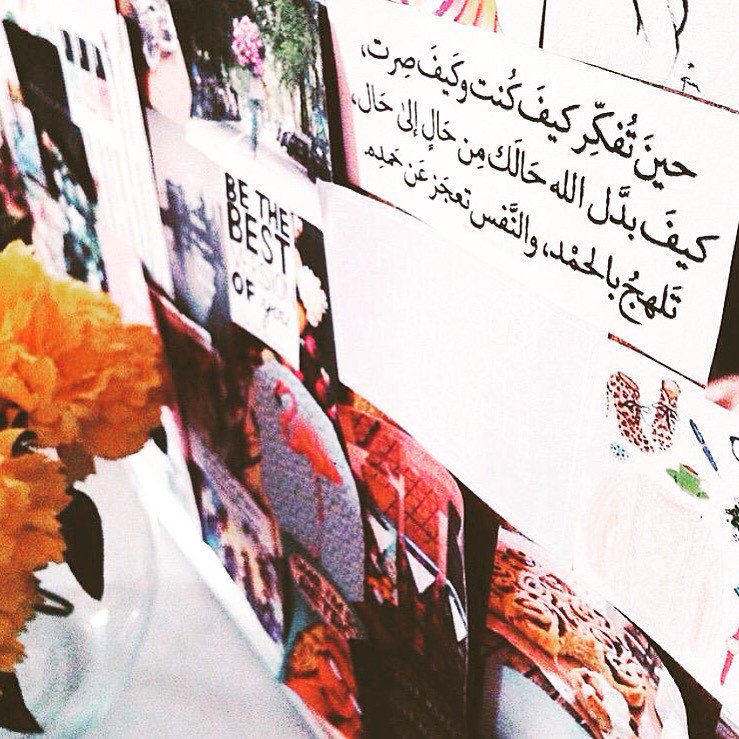 حينَ تُفكِّر كيفَ كُنت وكَيفَ صِرت،
كيفَ بدَّل الله حَالَك مِن حَالٍ إلىٰ حَال،
تَلهجُ بالحمْد، والنَّفس تعجَز عَن حَمدِه
BE THE
BEST
VERSION
OF you